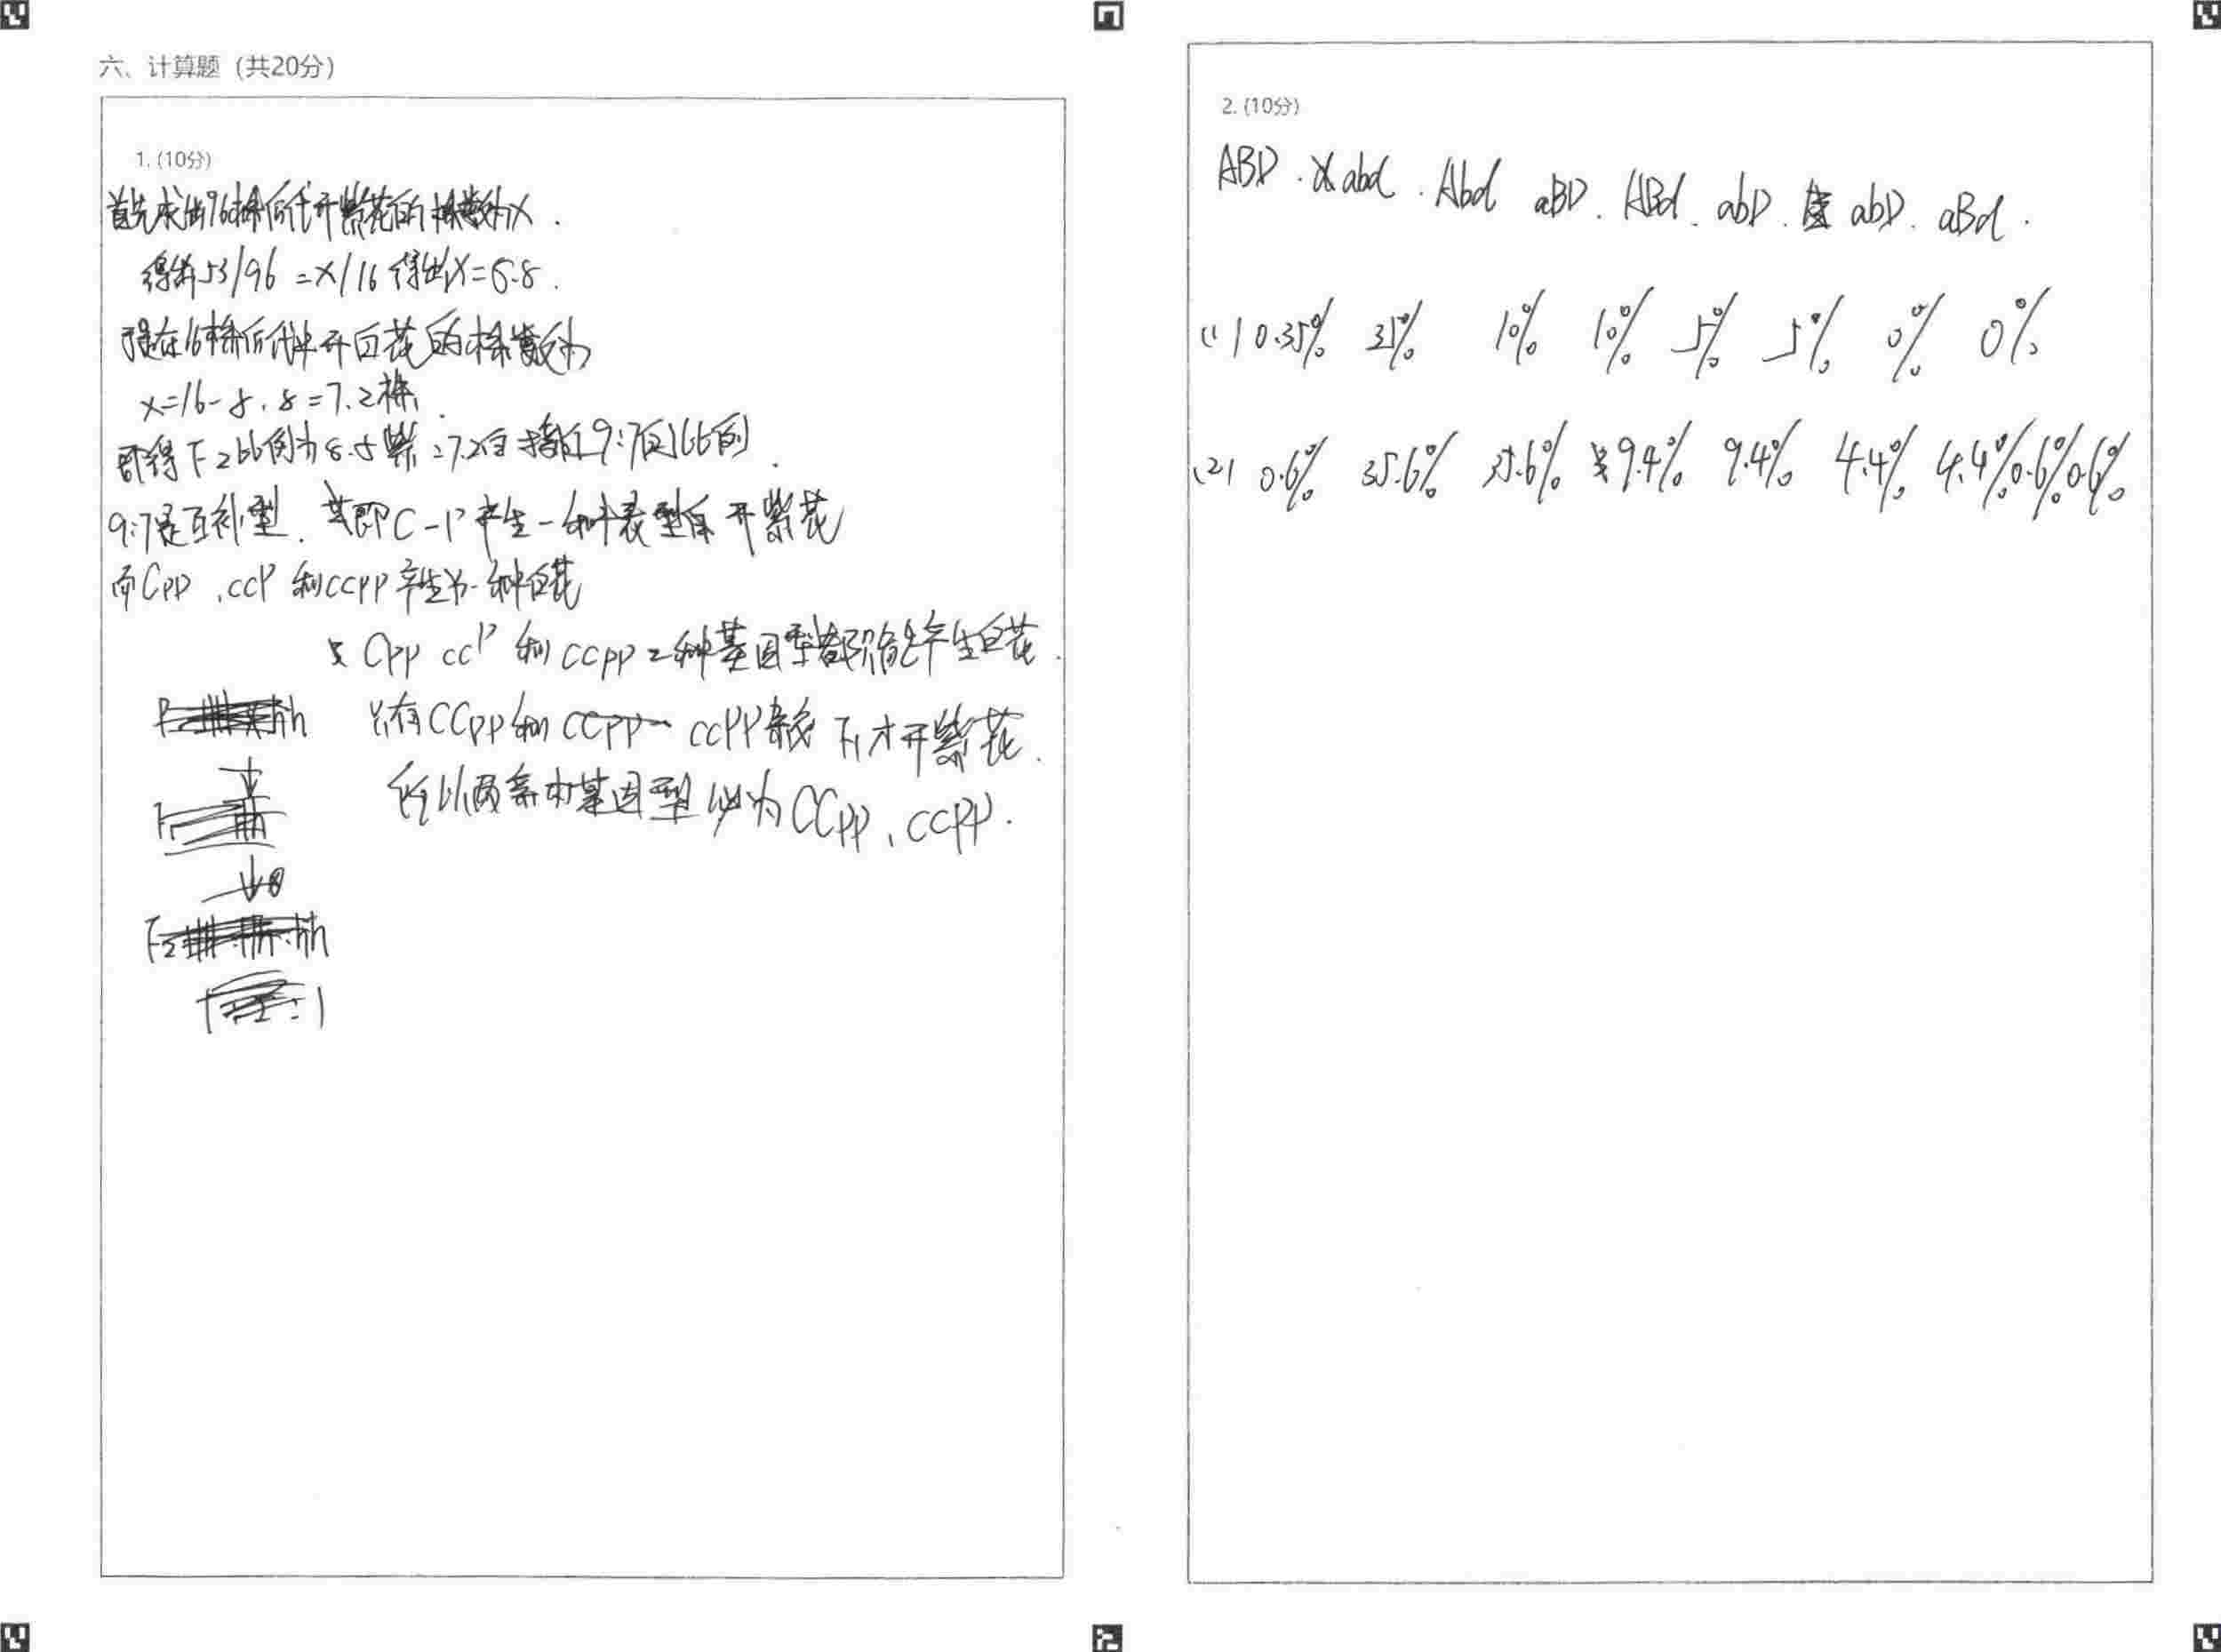 六、计算题（共20分）
1. (10分)
首先求出96株后代开紫花的株数为X.
得出53/96=X/16 得出X=8.8.
于是在16株后代中开白花的株数为
X=16-8.8=7.2株.
即得F2比例为8.8紫:7.2白 接近9:7的比例.
9:7是互补型. 即C-P产生一种表型 开紫花
而Cpp,ccP和ccpp产生另一种白花
Cpp ccP 和ccpp三种基因型都只能产生白花.
只有CCpp和ccPP杂交F1才开紫花.
所以两亲本基因型必为CCpp、ccPP.
2. (10分)
ABD. abd. Abd aBD. ABd. abD. abD. aBd.
(1) 0.35% 35% 10% 10% 5% 5% 0% 0%
(2) 0.6% 35.6% 35.6% 9.4% 9.4% 4.4% 4.4% 0.6% 0.6%